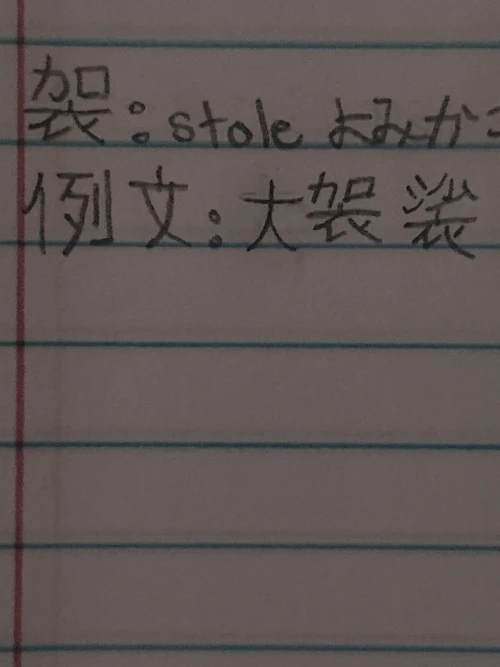 袈：stole よみかた
例文：大袈裟